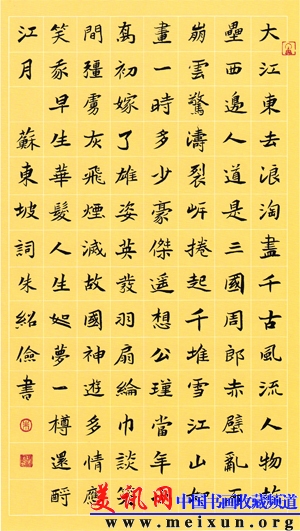 大江東去浪淘盡千古風流人物故
壘西邊人道是三國周郎赤壁亂石
崩雲驚濤裂岍捲起千堆雪江山如
畫一時多少豪傑遥想公瑾當年
喬初嫁了雄姿英發羽扇綸巾談笑
間彊虜灰飛煙滅故國神遊多情應
笑我早生華髮人生如夢一樽還酹
江月 蘇東坡詞朱紹儉書
美讯网 中国书画收藏频道
www.meixun.org